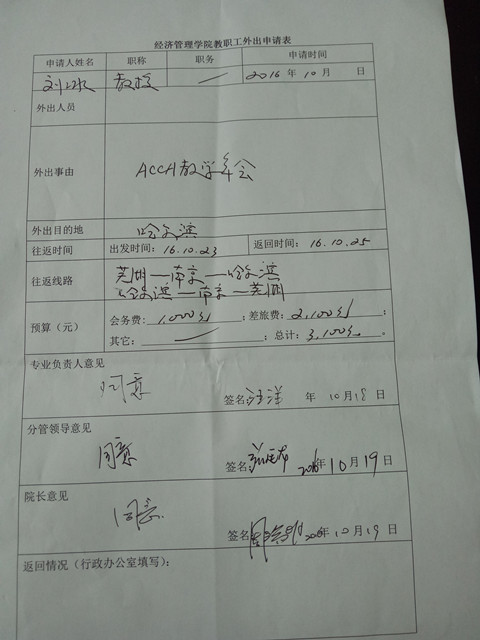 经济管理学院教职工外出申请表
申请人姓名 职称 职务 申请时间
刘冰 教授 2016 年 10 月 日
外出人员
外出事由 ACCA教学年会
外出目的地 哈尔滨
往返时间 出发时间：16.10.23 返回时间：16.10.25
往返线路 芜湖—南京—哈尔滨
哈尔滨—南京—芜湖
预算（元） 会务费：1,000元； 差旅费：2,100元；
其它： ； 总计：3,100元；
专业负责人意见
同意
签名：汪洋 年 10月18日
分管领导意见
同意
签名 2016年10月19日
院长意见
同意
签名 2016年10月19日
返回情况（行政办公室填写）：